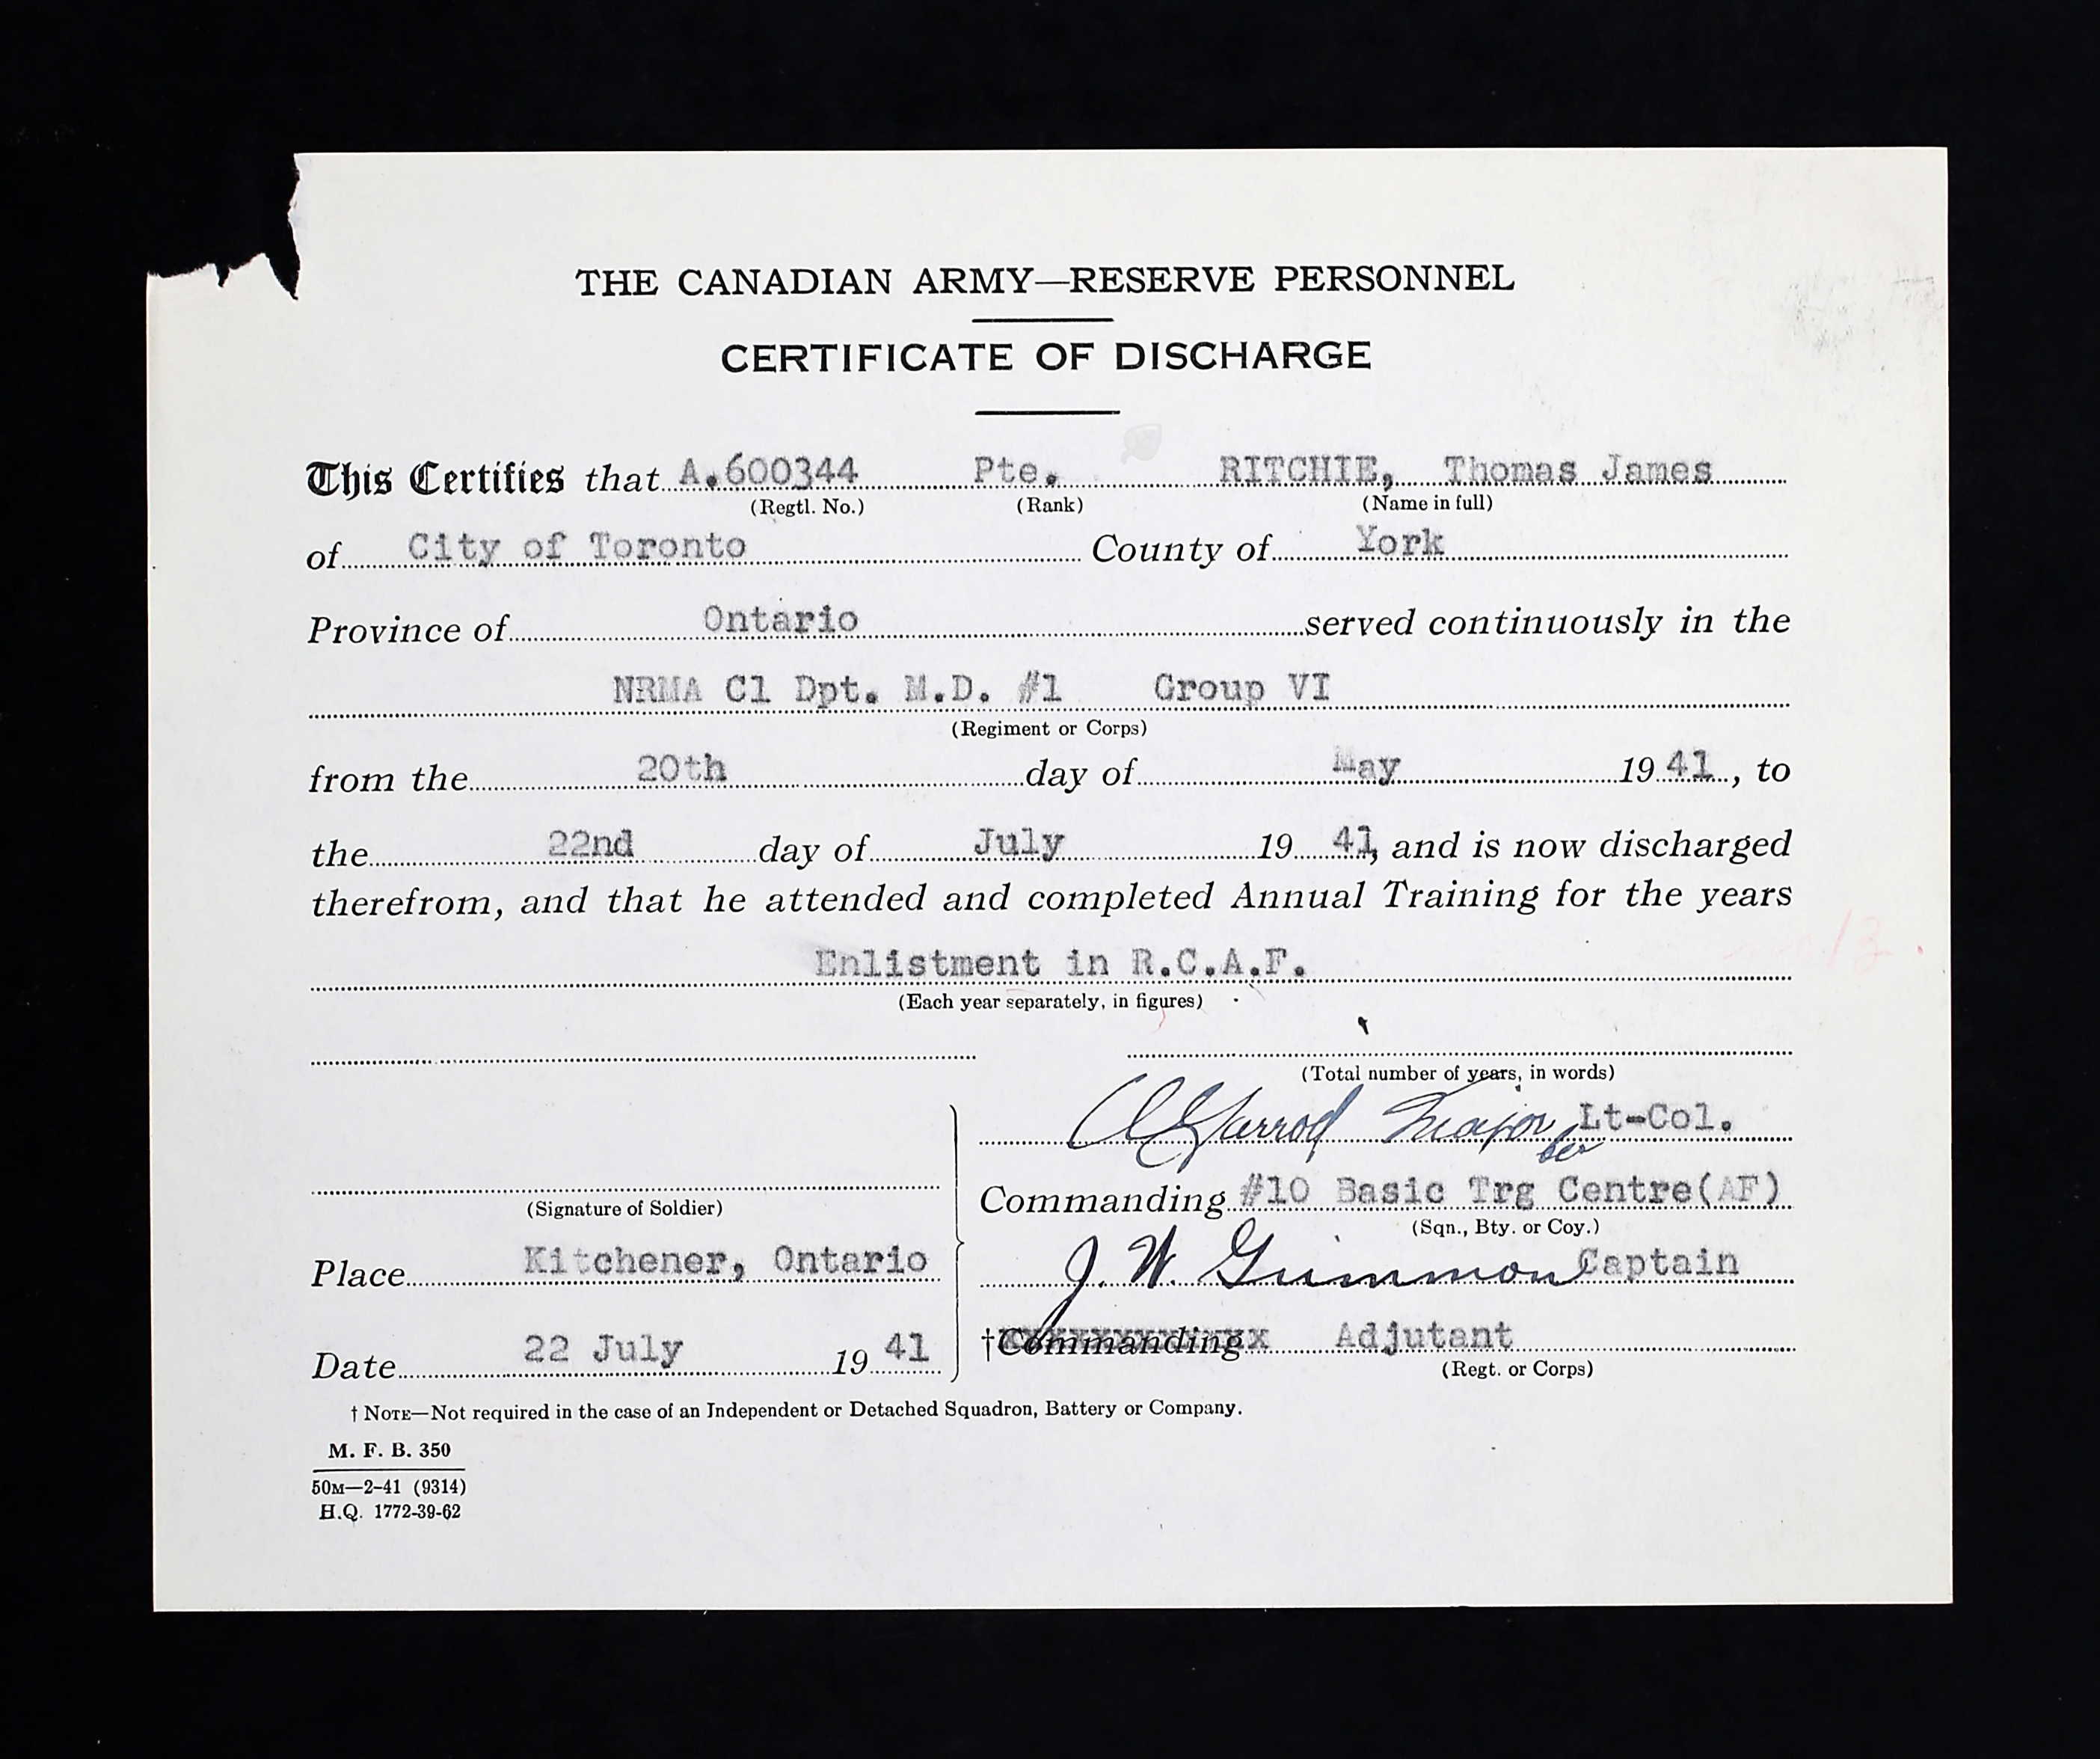 THE CANADIAN ARMY—RESERVE PERSONNEL
CERTIFICATE OF DISCHARGE
This Certifies that A.600344 Pte. RITCHIE, Thomas James
(Regtl. No.) (Rank) (Name in full)
of City of Toronto County of York
Province of Ontario served continuously in the
NRMA Cl Dpt. M.D. #1 Group VI
(Regiment or Corps)
from the 20th day of May 19 41, to
the 22nd day of July 19 41, and is now discharged
therefrom, and that he attended and completed Annual Training for the years
Enlistment in R.C.A.F.
(Each year separately, in figures)
(Total number of years, in words)
Garrod Major for Lt-Col.
(Signature of Soldier)
Commanding #10 Basic Trg Centre(AF)
(Sqn., Bty. or Coy.)
Place Kitchener, Ontario
J. W. Grimmon Captain
†Commanding Adjutant
(Regt. or Corps)
Date 22 July 19 41
† NOTE—Not required in the case of an Independent or Detached Squadron, Battery or Company.
M. F. B. 350
50M—2-41 (9314)
H.Q. 1772-39-62